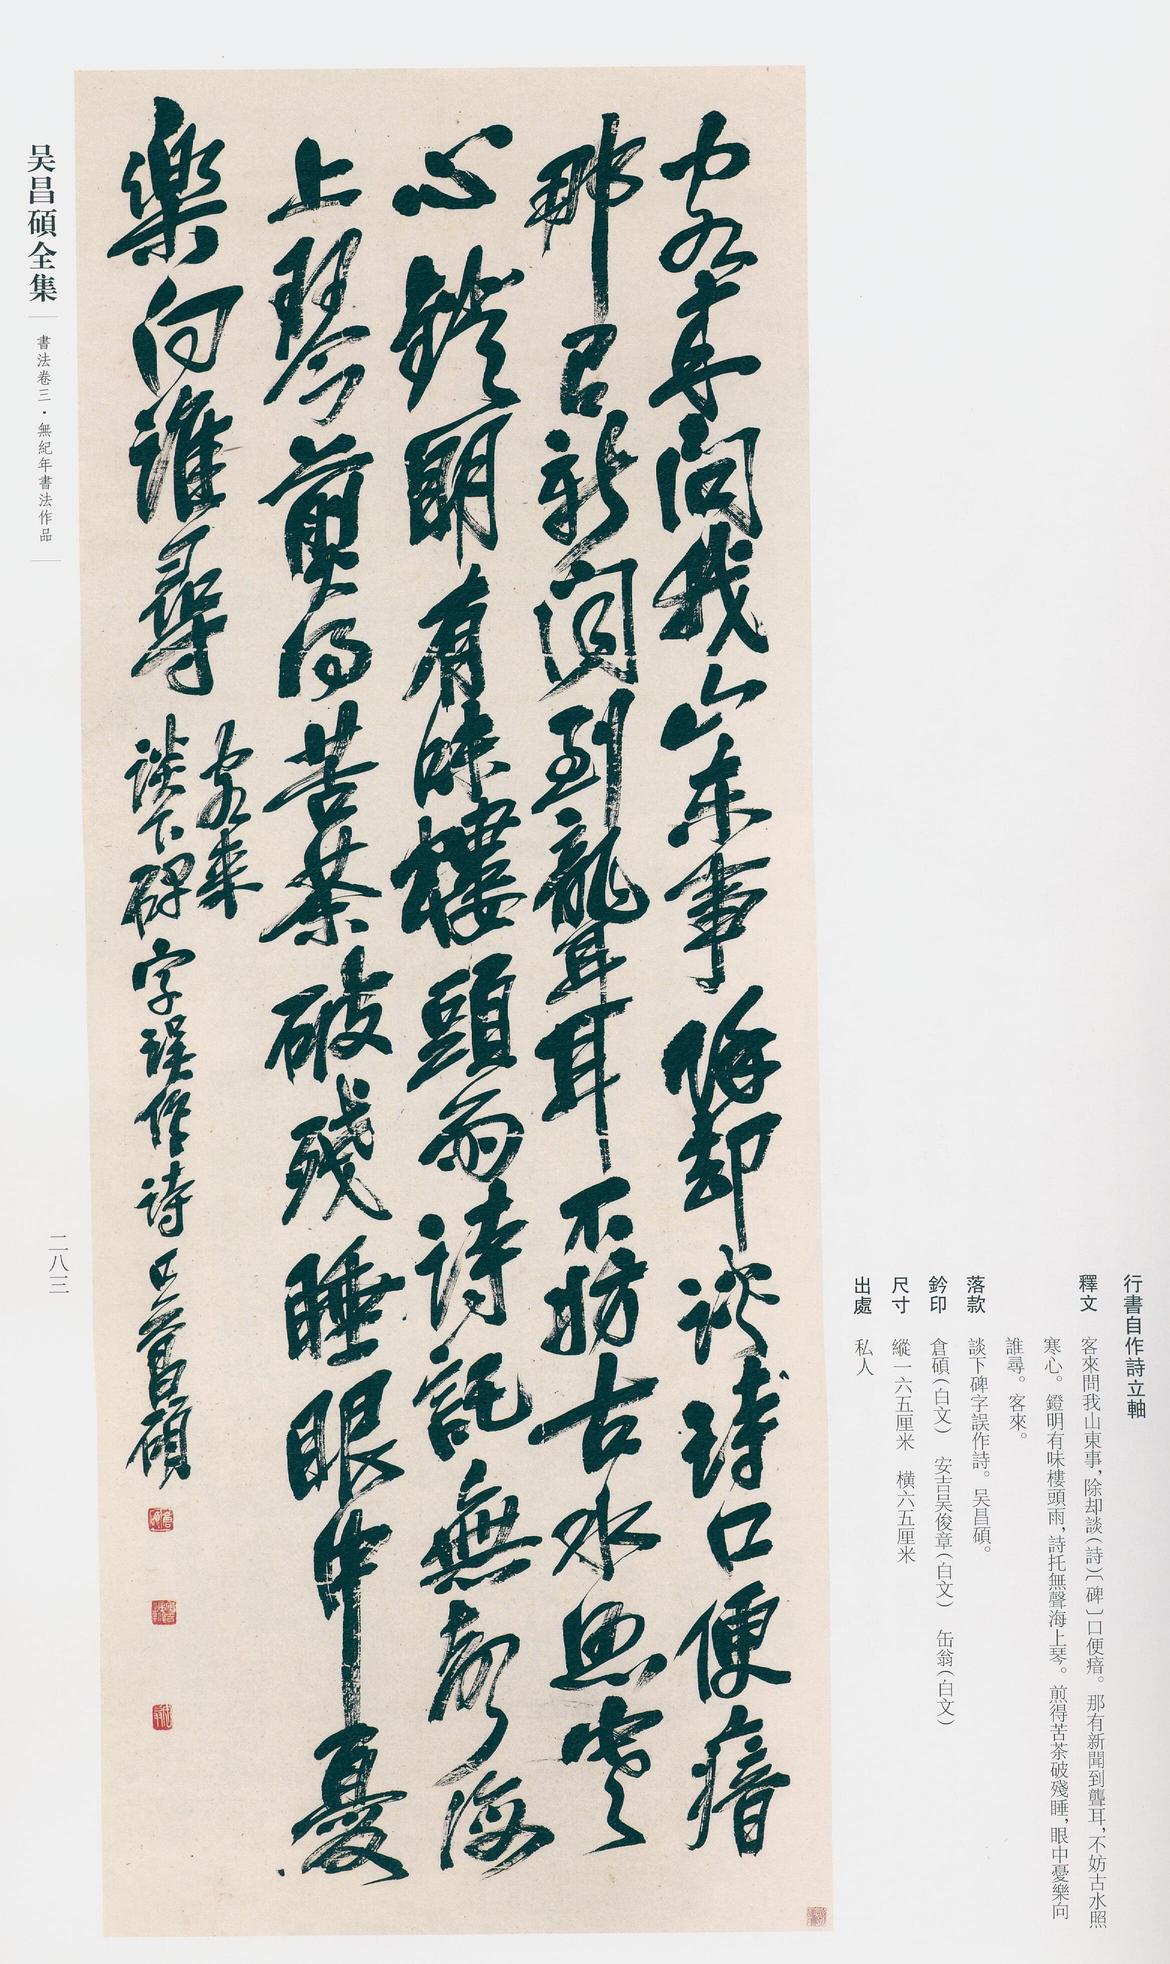 客來問我山東事除却談詩口便瘖
那有新聞到聾耳不妨古水照寒
心鐙明有味樓頭雨詩託無聲海
上琴煎得苦茶破殘睡眼中憂
樂向誰尋
客來
談下碑字誤作詩吳昌碩
行書自作詩立軸
釋文 客來問我山東事，除却談（詩）〔碑〕口便瘖。那有新聞到聾耳，不妨古水照
寒心。鐙明有味樓頭雨，詩托無聲海上琴。煎得苦茶破殘睡，眼中憂樂向
誰尋。客來。
落款 談下碑字誤作詩。吴昌碩。
鈐印 倉碩（白文） 安吉吴俊章（白文） 缶翁（白文）
尺寸 縱一六五厘米 橫六五厘米
出處 私人
吴昌碩全集
書法卷三·無紀年書法作品
二八三